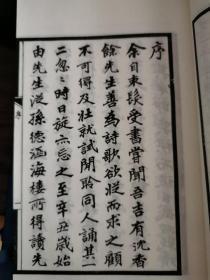 序
余自束髮受書嘗聞吾吉有沈香
餘先生善為詩歌欲從而求之顧
不可得及壯就試聞聆同人誦其一
二忽忽時日旋亦忘之至辛丑歲始
由先生從孫德涵海樓所得讀先